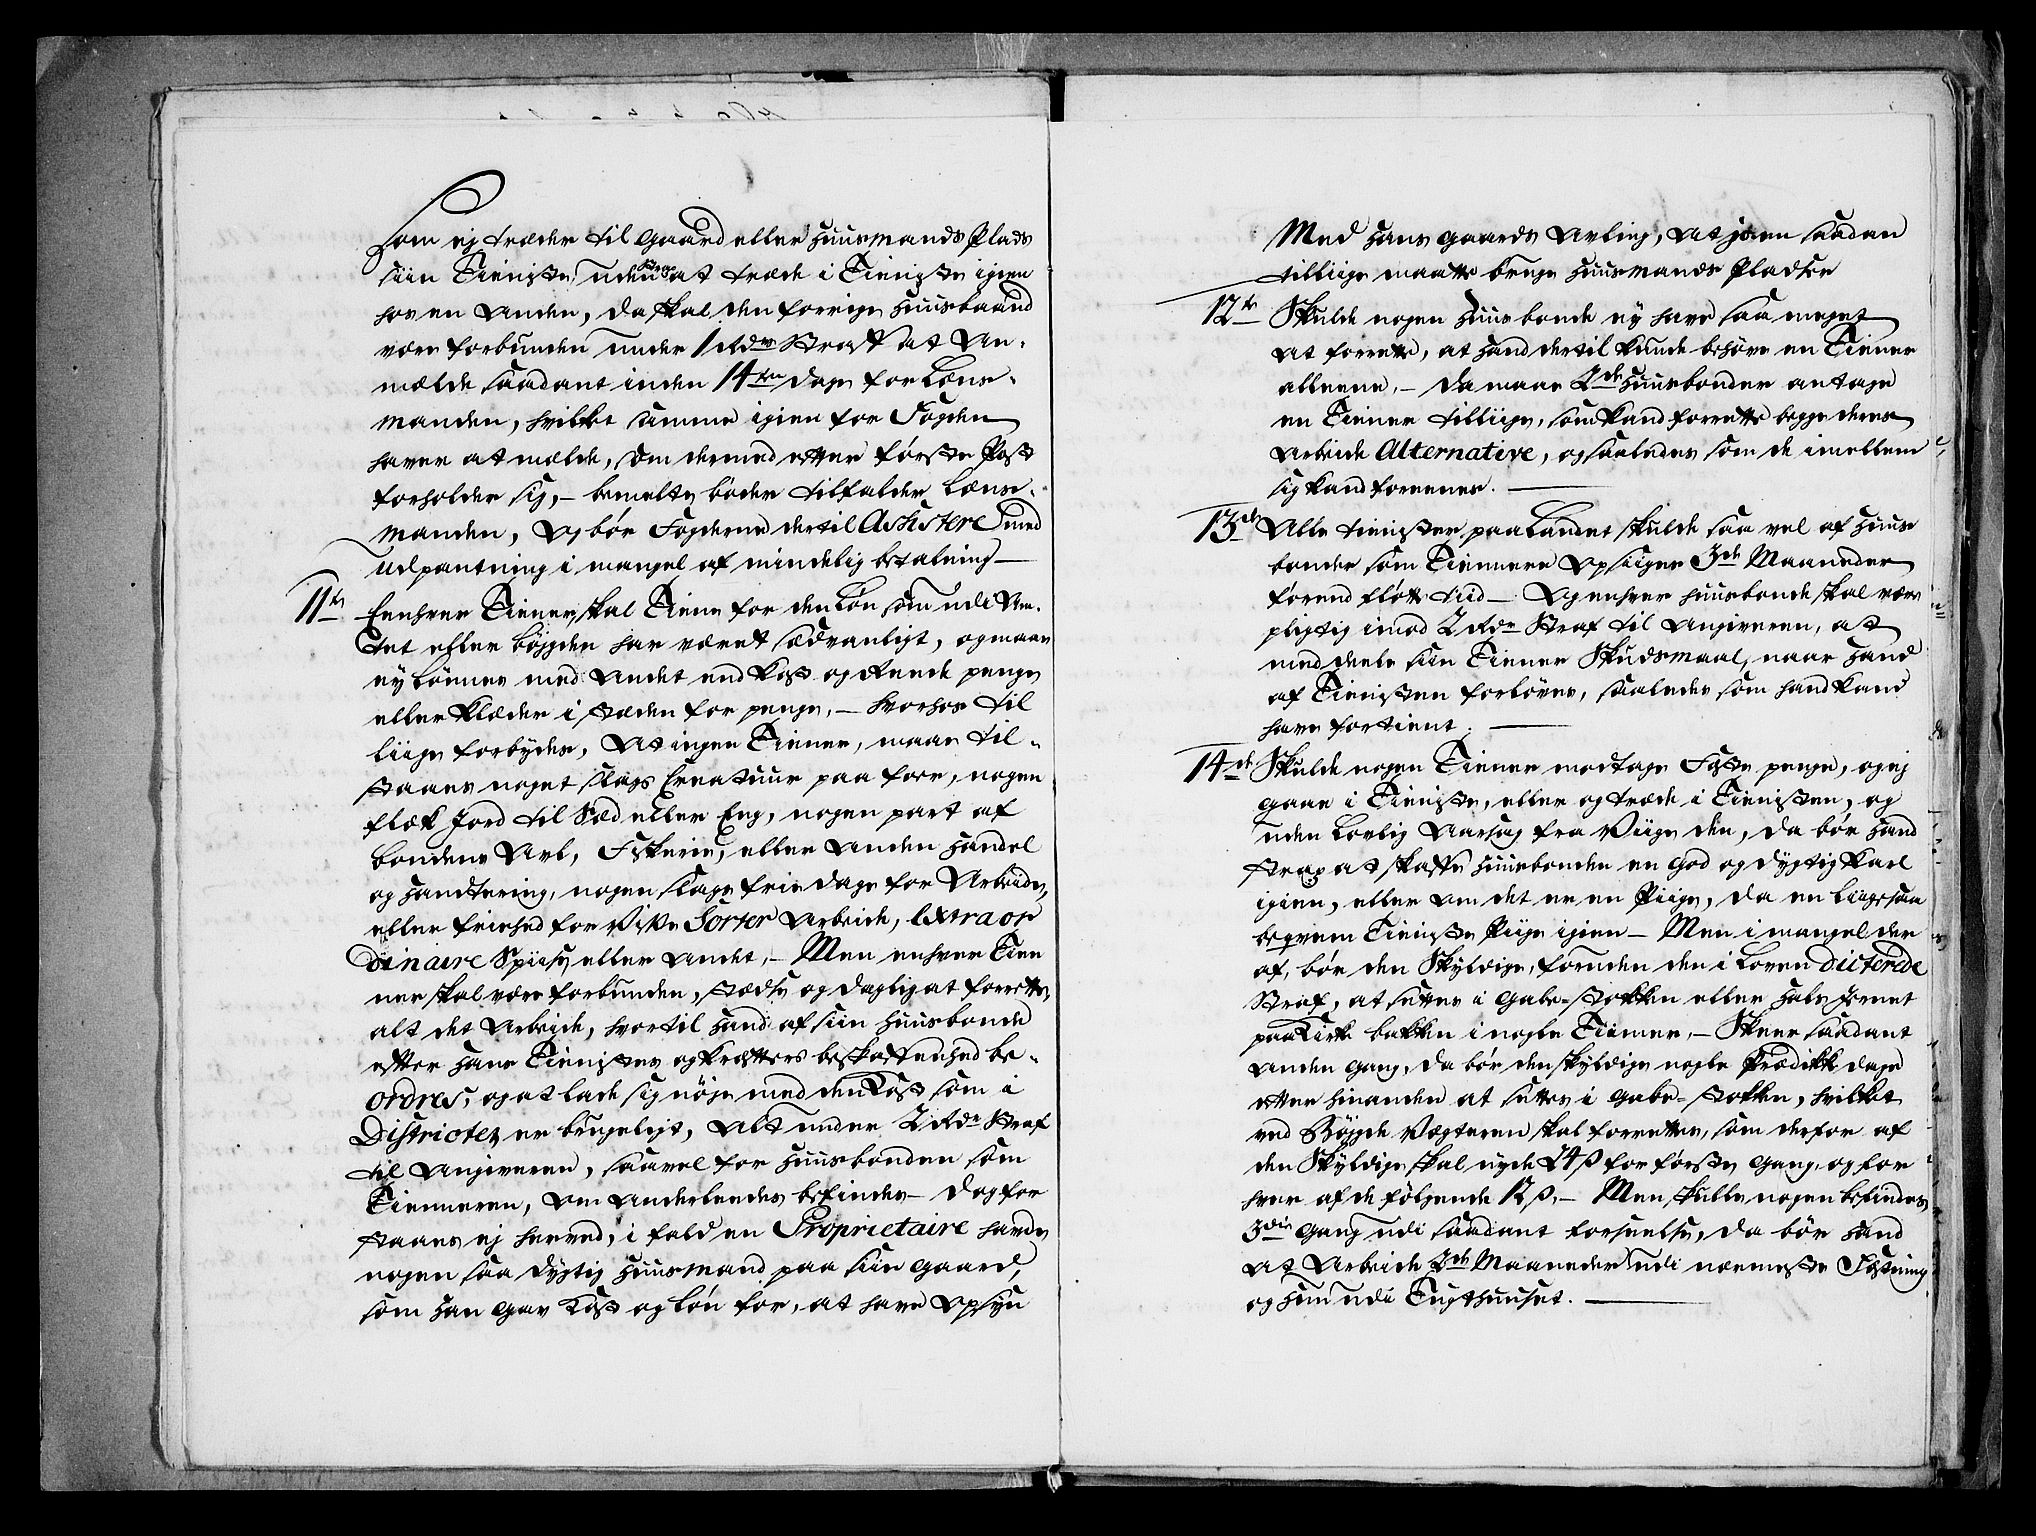 Som ej træder til Gaard eller Huusmands Plads
siin Tieniste, uden at træde i Tieniste igien
hos en Anden, da skal den forrige Huusbaand
være forbunden under 1 Rdr Straf at An-
mælde saadant inden 14ten Dage for Lens-
manden, hvilket samme igien for Fogden
haver at melde, som dermed efter første Post
forholder sig, - bemelte bøder tilfalder Lens-
manden, Og bør Fogderne dertil Assistere med
Udpantning i mangel af mindelig betalning
11te Eenhver Tiener skal Tiene for den Løn som udi Am-
tet eller bøygden har været sædvanligt, og maae
ey lønnes med Andet end Kost og Reede penge
eller Klæder i stæden for penge, - hvorhos til
liige forbydes, At ingen Tiener, maae til-
staaes noget slags Creatuur paa foer, nogen
flek Jord til Sæd eller Eng, nogen part af
bondens Avl, Fiskerie, eller Anden Handel
og Handtering, nogen slags frie dage for Arbeide,
eller friehed for Visse Sorter Arbeide, Extraor
dinaire Spiise eller Andet, - Men enhver Tien
ner skal være forbunden, stædse og daglig at forrette,
alt det Arbeide, hvortil Hand af siin Huusbonde
efter Hans Tienistes og Kræfters beskaffenhed be-
ordres, og at lade sig nøye med den Kost som i
Districtet er brugeligt, Alt under 2 Rdr Straf
til Angiveren, saavel for Huusbonden som
Tienneren, om Anderledes befindes - Dog for
staaes ej herved, i fald en Proprietaire havde
nogen saa dygtig Huusmand paa siin Gaard,
som Han gav Kost og Løn for, at have Opsyn
Med Hans Gaards Avling, At jo en saadan
tilliige maatte bruge Huusmands Pladser
12te Skulde nogen Huusbonde ey have saa meget
At forrette, at Hand dertil kunde behøve en Tiener
alleene, - da maae 2de Huusbonder antage
en Tiener tilliige, som kand forrette begge deres
Arbeide Alternative, og saaledes som de imellem
sig kand foreenes.
13de Alle tienister paa Landet skulde saa vel af Huus
bonder som Tiennere Opsiiges 3de Maaneder
forend fløtte tid - Og enhver Huusbonde skal være
pligtig imod 2 Rdr Straf til Angiveren, at
meddeele siin Tiener Skudsmaal, naar Hand
af Tienisten forløves, saaledes som Hand kand
have fortient.
14de Skulde nogen Tiener modtage Fæste penge, og ej
gaae i Tieniste, eller og træde i Tienisten, og
uden Lovlig Aarsag fra Viige den, da bør Hand
strax at skaffe Huusbonden en God og dygtig Karl
igien, eller om det er en Piige, da en liigesaa
beqvem Tieniste Piige igien - Men i mangel der
af, bør den Skyldige, foruden den i Loven dicterede
Straf, at settes i Gabe-Stokken eller Hals Jernet
paa Kirke bakken i nogle Tiimer, - Skeer saadant
Anden Gang, da bør den skyldige nogle Prædikke dage
efter hinanden at settes i Gabe-Stokken, hvilket
ved Bøygde Vægteren skal forrettes, som derfor af
den Skyldige skal nyde 24 ß for første Gang, og for
hver af de følgende 12 ß, - Men skulle nogen befindes
3die Gang udi saadant forseelse, da bør Hand
At Arbeide 3de Maaneder udi nærmeste Fæstning
og Hun udi Tugthuuset.